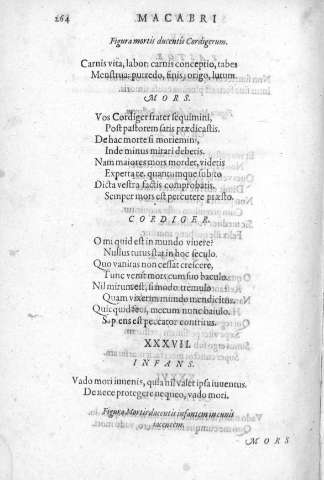 264 MACABRI
Figura mortis ducentis Cordigerum.
Carnis vita, labor: carnis conceptio, tabes
Menstrua: putredo, finis, origo, lutum.
MORS.
Vos Cordiger frater sequimini,
Post pastorem satis prædicastis.
De hac morte si moriemini,
Inde minus mirari deberis.
Nam maiores mors mordet, videtis
Experta re, quantumque subito
Dicta vestra factis comprobatis.
Semper mors est percutere præsto.
CORDIGER.
O mi quid est in mundo viuere?
Nullus tutus stat in hoc seculo.
Quo vanitas non cessat crescere,
Tunc venit mors cum suo baculo.
Nil mirum est, si modo tremulo
Quam vixerim mundo mendicitus.
Quicquid fers, mecum nunc baiulo.
Sapiens est peccator contritus.
XXXVII.
INFANS.
Vado mori iuuenis, quia nil valet ipsa iuuentus.
De nece protegere nequeo, vado mori.
Figura Mortis ducentis infantem in cunis
iacentem.
MORS